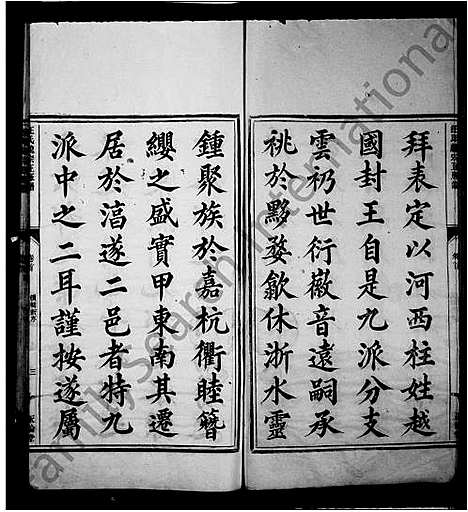 拜表定以河西柱姓越
國封王自是九派分支
雲礽世衍徽音遠嗣承
祧於黟婺歙休浙水靈
鍾聚族於嘉杭衢睦簪
纓之盛實甲東南其遷
居於湻遂二邑者特九
派中之二耳謹按遂屬
三
FamilySearch International